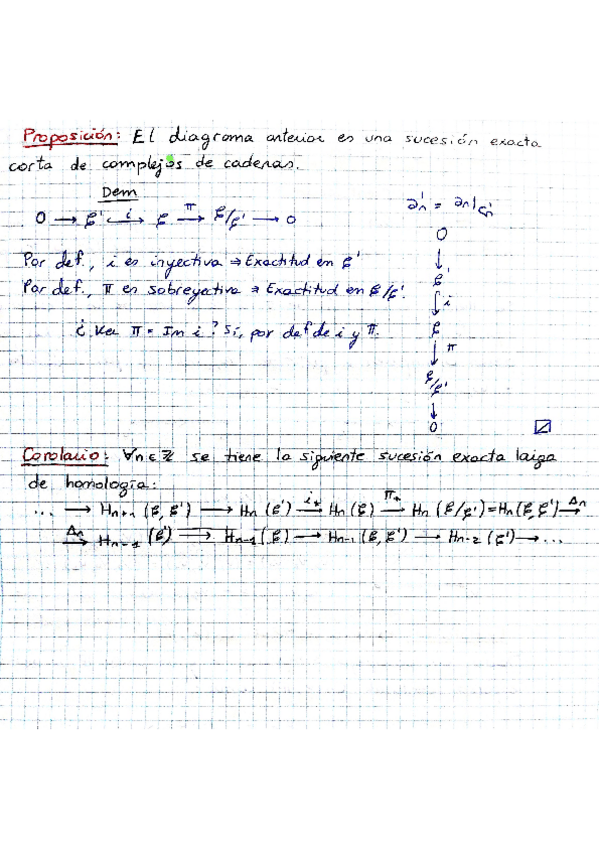 Proposición: El diagrama anterior es una sucesión exacta
corta de complejos de cadenas.
Dem
0 → ℰ' ↪ i ℰ → π ℰ/ℰ' → 0
∂'n = ∂n|ℰ'n
0
↓
ℰ'
↓ i
ℰ
↓ π
ℰ/ℰ'
↓
0
Por def., i es inyectiva ⇒ Exactitud en ℰ'
Por def., π es sobreyectiva ⇒ Exactitud en ℰ/ℰ'.
¿Ker π = Im i? Sí, por def de i y π.
Corolario: ∀n ∈ ℤ se tiene la siguiente sucesión exacta larga
de homología:
... → Hn+1 (ℰ, ℰ') → Hn (ℰ') → i* Hn (ℰ) → π* Hn (ℰ/ℰ') = Hn (ℰ, ℰ') → Δn
→ Δn Hn-1 (ℰ') → Hn-1 (ℰ) → Hn-1 (ℰ, ℰ') → Hn-2 (ℰ') → ...